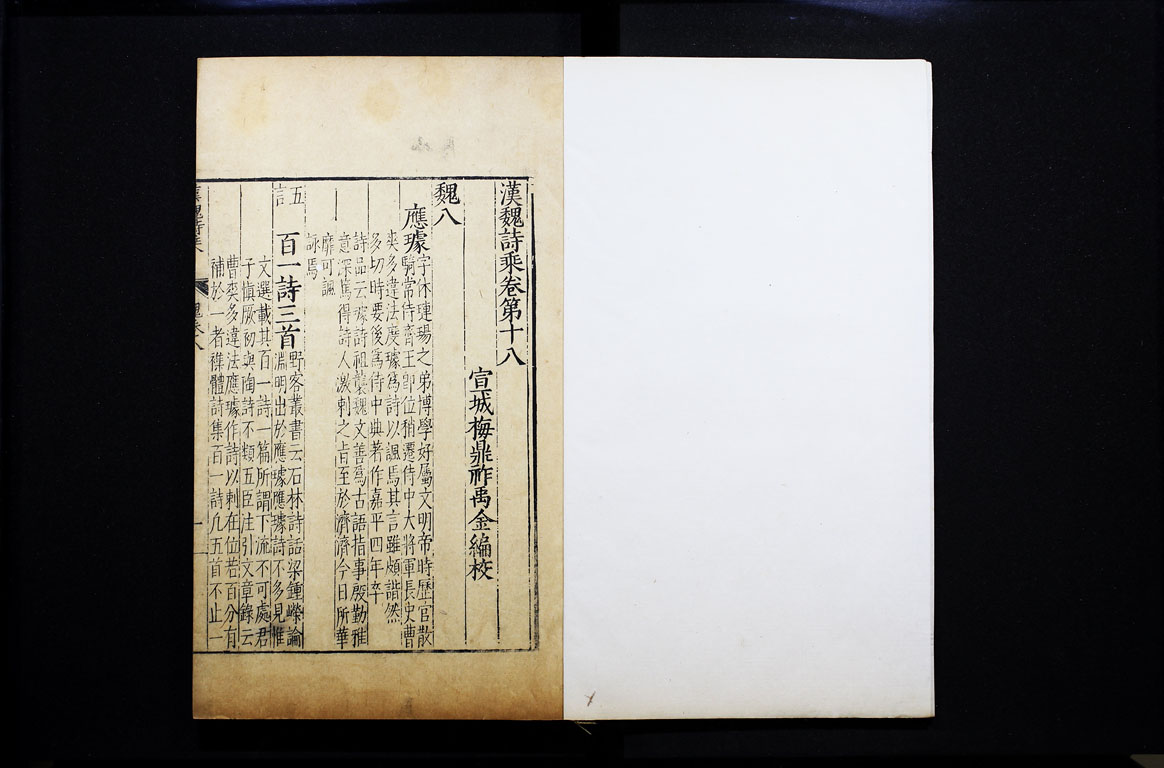 漢魏詩乘卷第十八
宣城梅鼎祚禹金編校
魏八
應璩
字休璉瑒之弟博學好屬文明帝時歷官散
騎常侍齊王即位稍遷侍中大將軍長史曹
爽多違法度璩為詩以諷焉其言雖頗諧然
多切時要後為侍中典著作嘉平四年卒
詩品云璩詩祖襲魏文善為古語指事殷勤雅
意深篤得詩人激刺之旨至於濟濟今日所華
靡可諷
詠焉
五言
百一詩三首
野客叢書云石林詩話梁鍾嶸論
淵明出於應璩應璩詩不多見惟
文選載其百一詩一篇所謂下流不可處君
子慎厥初與陶詩不類五臣注引文章錄云
曹爽多違法應璩作詩以刺在位若百分有
補於一者襍體詩集百一詩凡五首不止一
漢魏詩乘
魏卷八
一